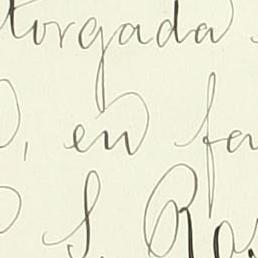 torgada
, en fa
S. Ro